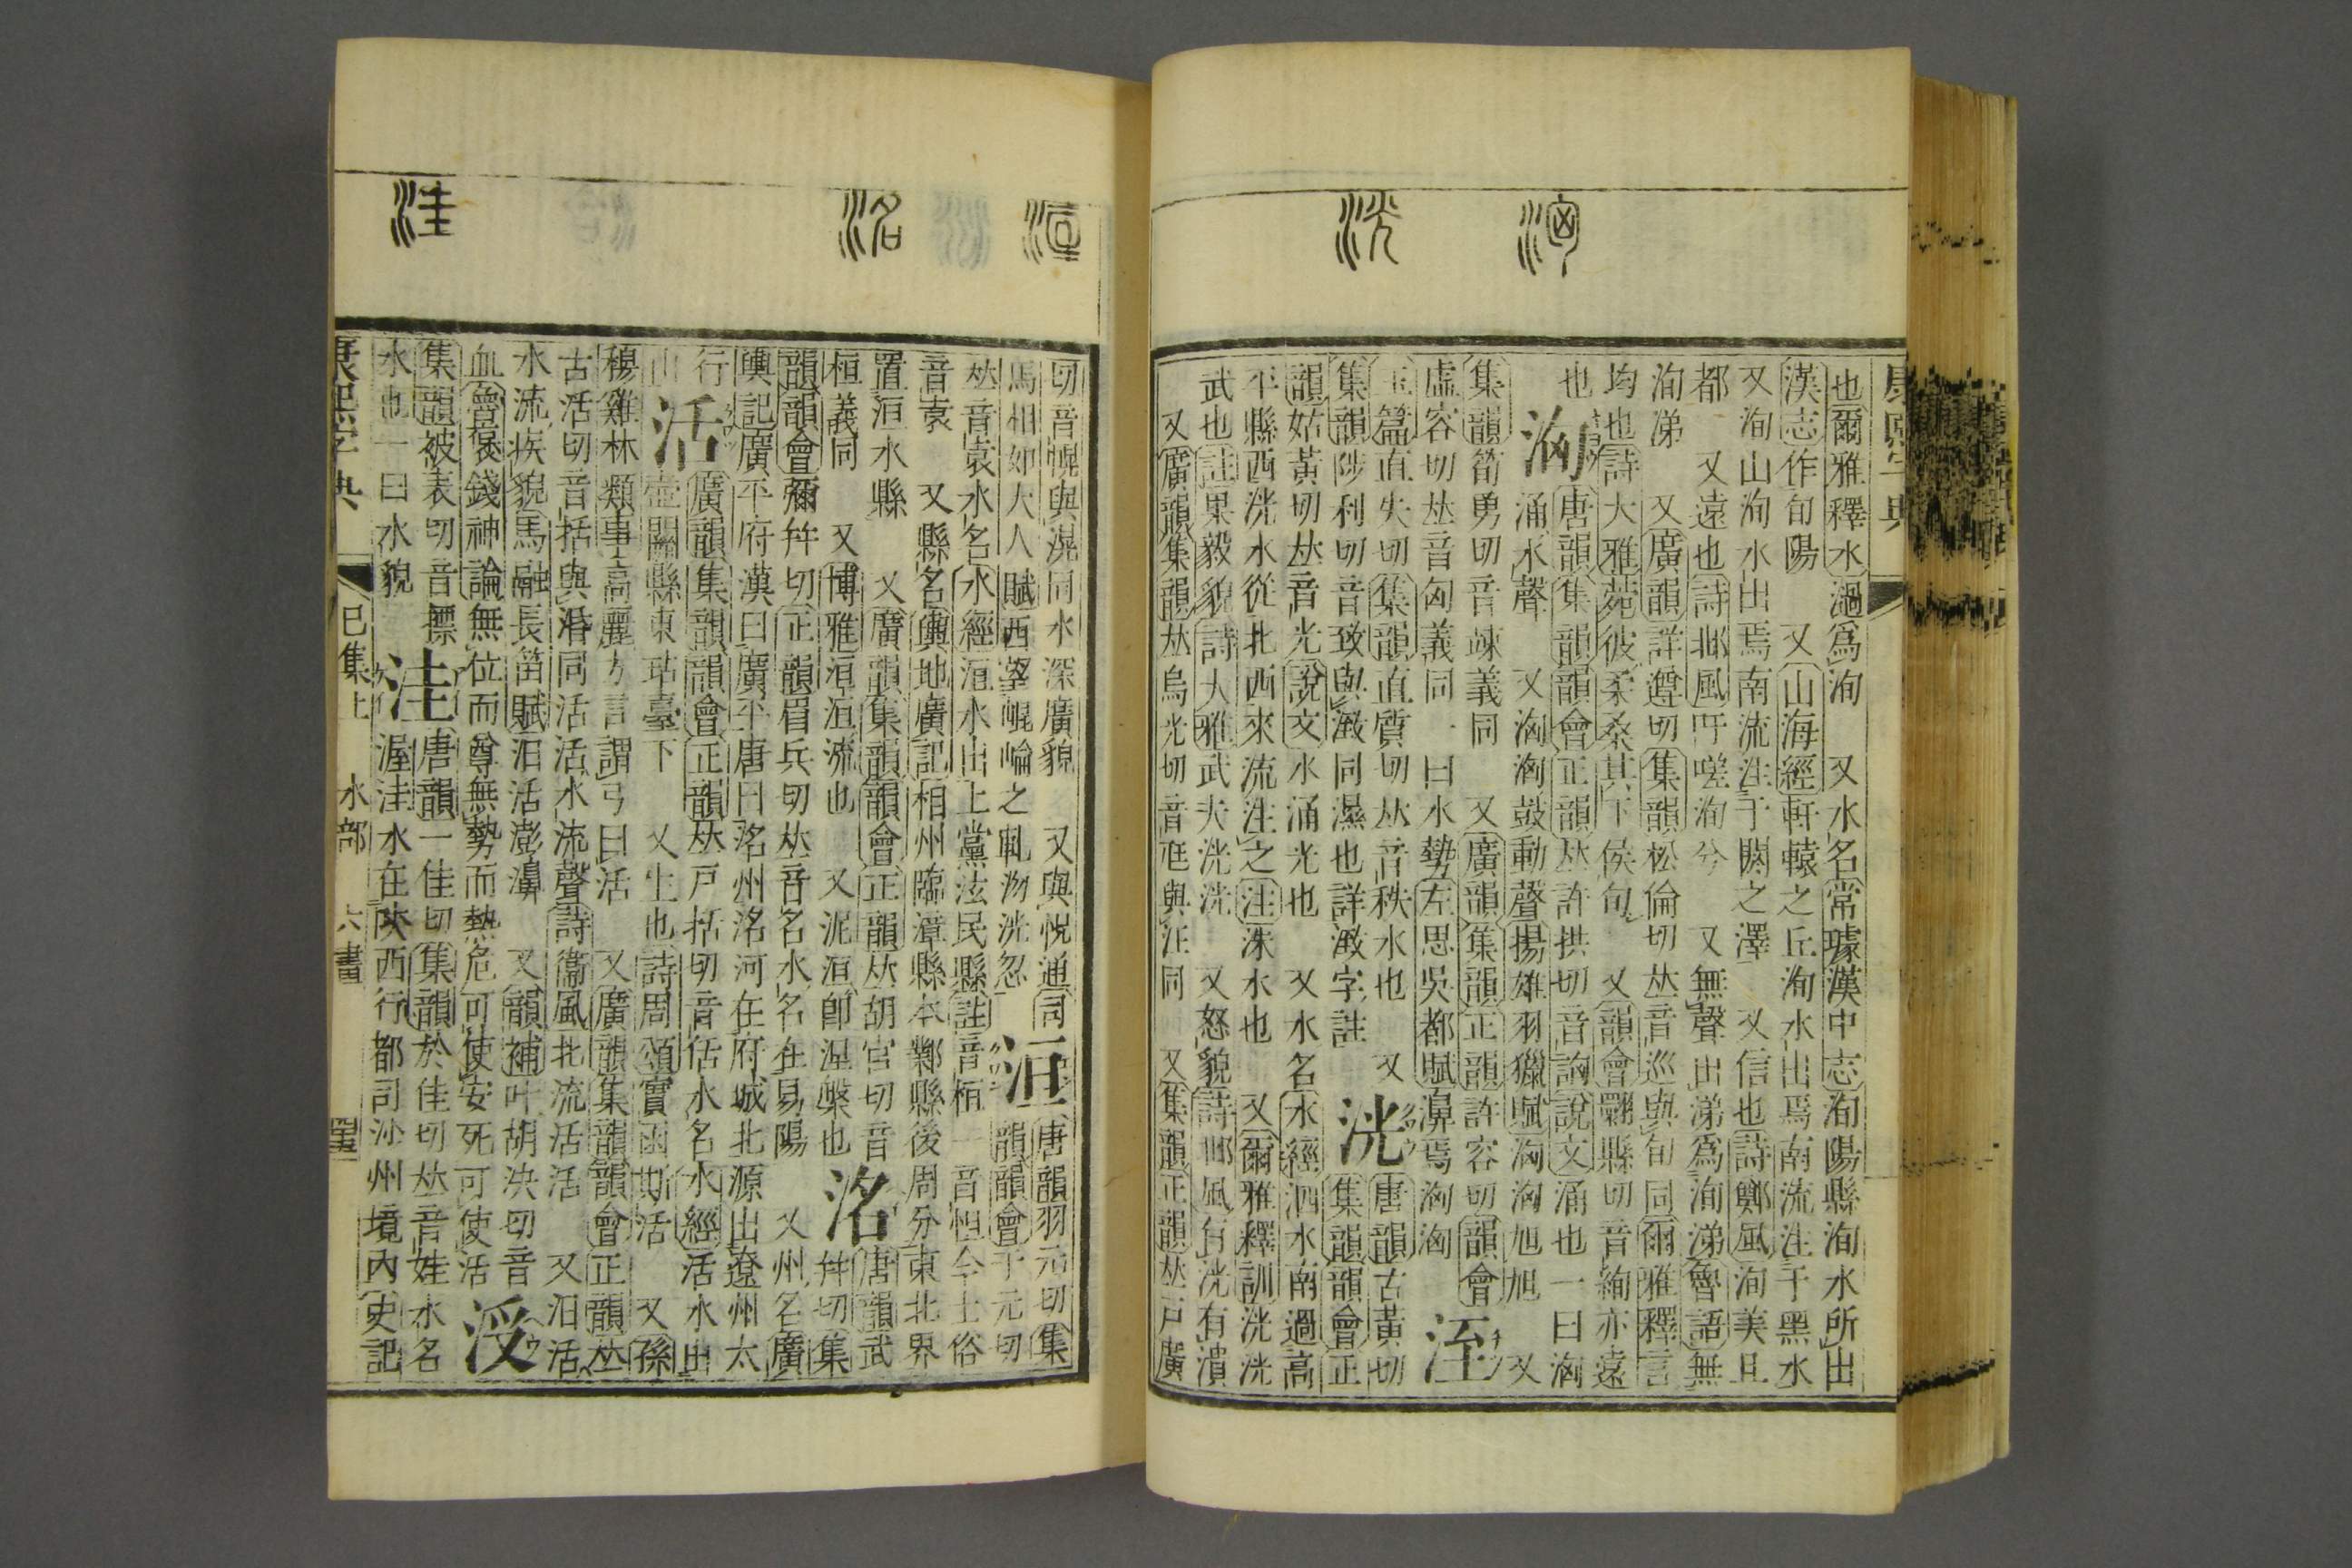 洶
洸
康熙字典
也爾雅釋水過爲洵　又水名常璩漢中志洵陽縣洵水所出
漢志作旬陽　又山海經軒轅之丘洵水出焉南流注于黑水
又洵山洵水出焉南流注于閼之澤　又信也詩鄭風洵美且
都　又遠也詩邶風吁嗟洵兮　又無聲出涕爲洵涕魯語無
洵涕　又廣韻詳遵切集韻松倫切𠀤音巡與旬同爾雅釋言
均也詩大雅菀彼柔桑其下侯旬　又韻會翾縣切音絢亦遠
也　洶　唐韻集韻韻會正韻𠀤許拱切音詾說文涌也一曰洶
涌水聲　又洶洶鼓動聲揚雄羽獵賦洶洶旭旭　又
集韻筍勇切音竦義同　又廣韻集韻正韻許容切韻會
虛容切𠀤音匈義同一曰水勢左思吳都賦濞焉洶洶　洷
玉篇直失切集韻直質切𠀤音秩水也　又
集韻陟利切音致與㴛同濕也詳㴛字註　洸　唐韻古黃切
集韻韻會正
韻姑黃切𠀤音光說文水涌光也　又水名水經泗水南過高
平縣西洸水從北西來流注之注洙水也　又爾雅釋訓洸洸
武也註果毅貌詩大雅武夫洸洸　又怒貌詩邶風有洸有潰
又廣韻集韻𠀤烏光切音尪與汪同　又集韻正韻𠀤戸廣
洹
洺
洼
切音幌與滉同水深廣貌　又與怳通司
馬相如大人賦西望崐崘之軋沕洸忽　洹　唐韻羽元切集
韻韻會于元切
𠀤音袁水名水經洹水出上黨泫氏縣註音桓一音恒今土俗
音袁　又縣名輿地廣記相州臨漳縣本鄴縣後周分東北界
置洹水縣　又廣韻集韻韻會正韻𠀤胡官切音
桓義同　又博雅洹洹流也　又泥洹卽涅槃也　洺　唐韻武
幷切集
韻韻會彌幷切正韻眉兵切𠀤音名水名在易陽　又州名廣
輿記廣平府漢曰廣平唐曰洺州洺河在府城北源出遼州太
行
山　活　廣韻集韻韻會正韻𠀤戸括切音佸水名水經活水出
壺關縣東玷臺下　又生也詩周頌實函斯活　又孫
穆雞林類事高麗方言謂弓曰活　又廣韻集韻韻會正韻𠀤
古活切音括與濽同活活水流聲詩衞風北流活活　又汩活
水流疾貌馬融長笛賦汩活澎濞　又韻補叶胡決切音
血魯褒錢神論無位而尊無勢而熱危可使安死可使活　洝
集韻被表切音摽　洼　唐韻一佳切集韻於佳切𠀤音娃水名
水也一曰水貌　渥洼水在陝西行都司沙州境內史記
康熙字典　巳集上　水部　六畫